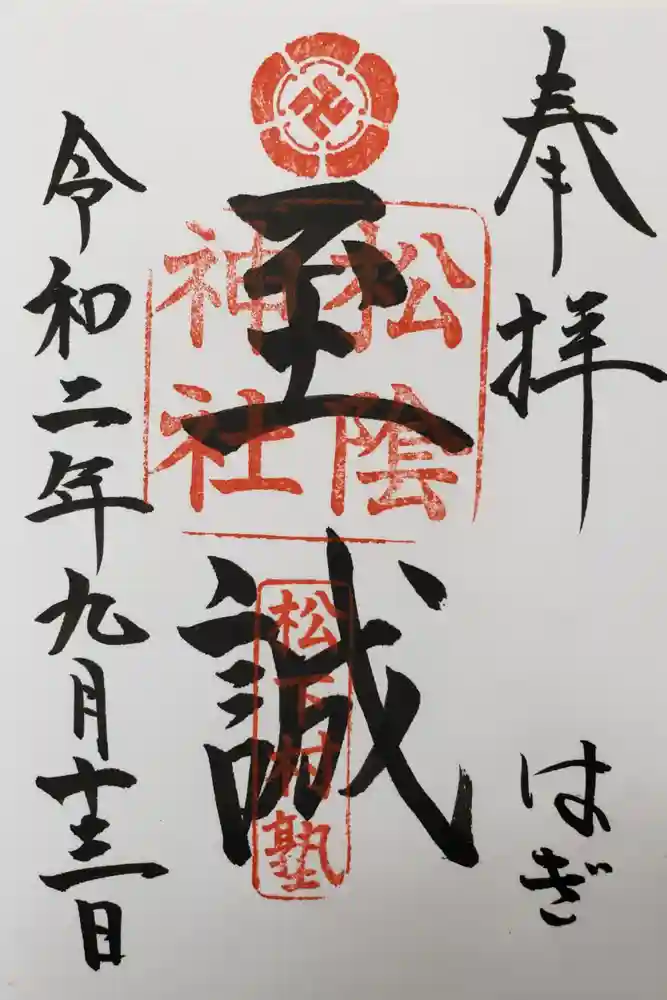 奉拝
はぎ
至誠
松陰
神社
松下村塾
令和二年九月十三日